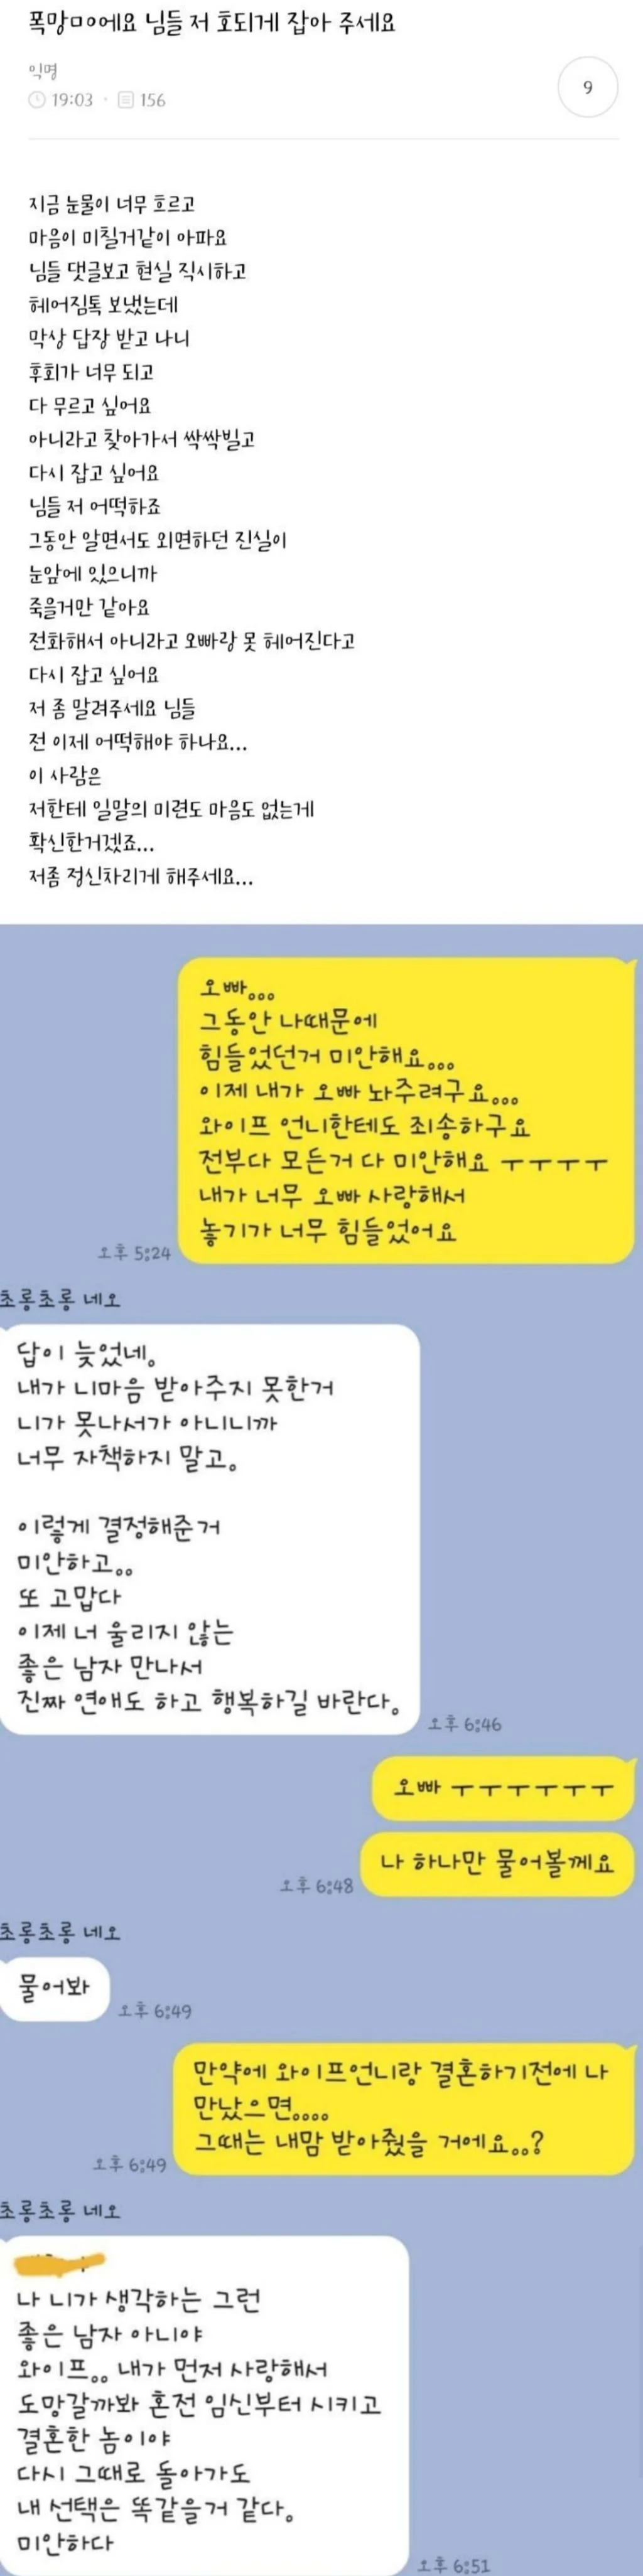 폭망ㅁㅇ에요 님들 저 호되게 잡아 주세요
익명
19:03 · 156
9
지금 눈물이 너무 흐르고
마음이 미칠거같이 아파요
님들 댓글보고 현실 직시하고
헤어짐톡 보냈는데
막상 답장 받고 나니
후회가 너무 되고
다 무르고 싶어요
아니라고 찾아가서 싹싹빌고
다시 잡고 싶어요
님들 저 어떡하죠
그동안 알면서도 외면하던 진실이
눈앞에 있으니까
죽을거만 같아요
전화해서 아니라고 오빠랑 못 헤어진다고
다시 잡고 싶어요
저 좀 말려주세요 님들
전 이제 어떡해야 하나요...
이 사람은
저한테 일말의 미련도 마음도 없는게
확신한거겠죠...
저좀 정신차리게 해주세요...
오빠...
그동안 나때문에
힘들었던거 미안해요...
이제 내가 오빠 놔주려구요...
와이프 언니한테도 죄송하구요
전부다 모든거 다 미안해요 ㅜㅜㅜㅜ
내가 너무 오빠 사랑해서
놓기가 너무 힘들었어요
오후 5:24
초롱초롱 네오
답이 늦었네.
내가 니마음 받아주지 못한거
니가 못나서가 아니니까
너무 자책하지 말고.
이렇게 결정해준거
미안하고..
또 고맙다
이제 너 울리지 않는
좋은 남자 만나서
진짜 연애도 하고 행복하길 바란다.
오후 6:46
오빠 ㅜㅜㅜㅜㅜㅜ
나 하나만 물어볼께요
오후 6:48
초롱초롱 네오
물어봐
오후 6:49
만약에 와이프언니랑 결혼하기전에 나
만났으면....
그때는 내맘 받아줬을 거에요..?
오후 6:49
초롱초롱 네오
나 니가 생각하는 그런
좋은 남자 아니야
와이프.. 내가 먼저 사랑해서
도망갈까봐 혼전 임신부터 시키고
결혼한 놈이야
다시 그때로 돌아가도
내 선택은 똑같을거 같다.
미안하다
오후 6:51